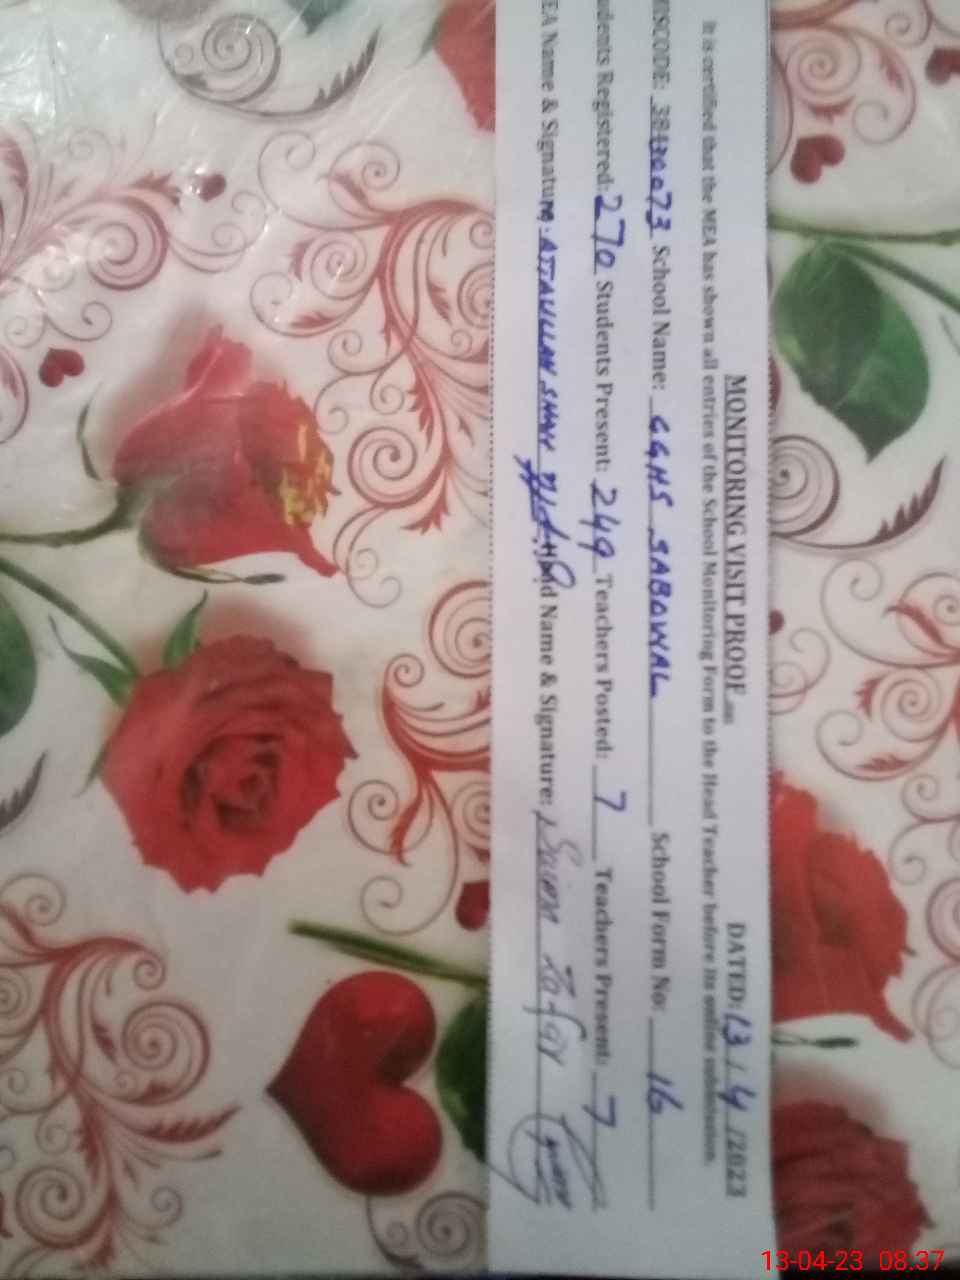 MONITORING VISIT PROOF DATED: 13 / 4 /2023
It is certified that the MEA has shown all entries of the School Monitoring Form to the Head Teacher before its online submission.
MISCODE: 38130073 School Name: GGHS SABOWAL School Form No: 16
udents Registered: 270 Students Present: 249 Teachers Posted: 7 Teachers Present: 7
EA Name & Signature: ATTAULLAH SHAH Head Name & Signature: Saima Zafar
13-04-23 08:37